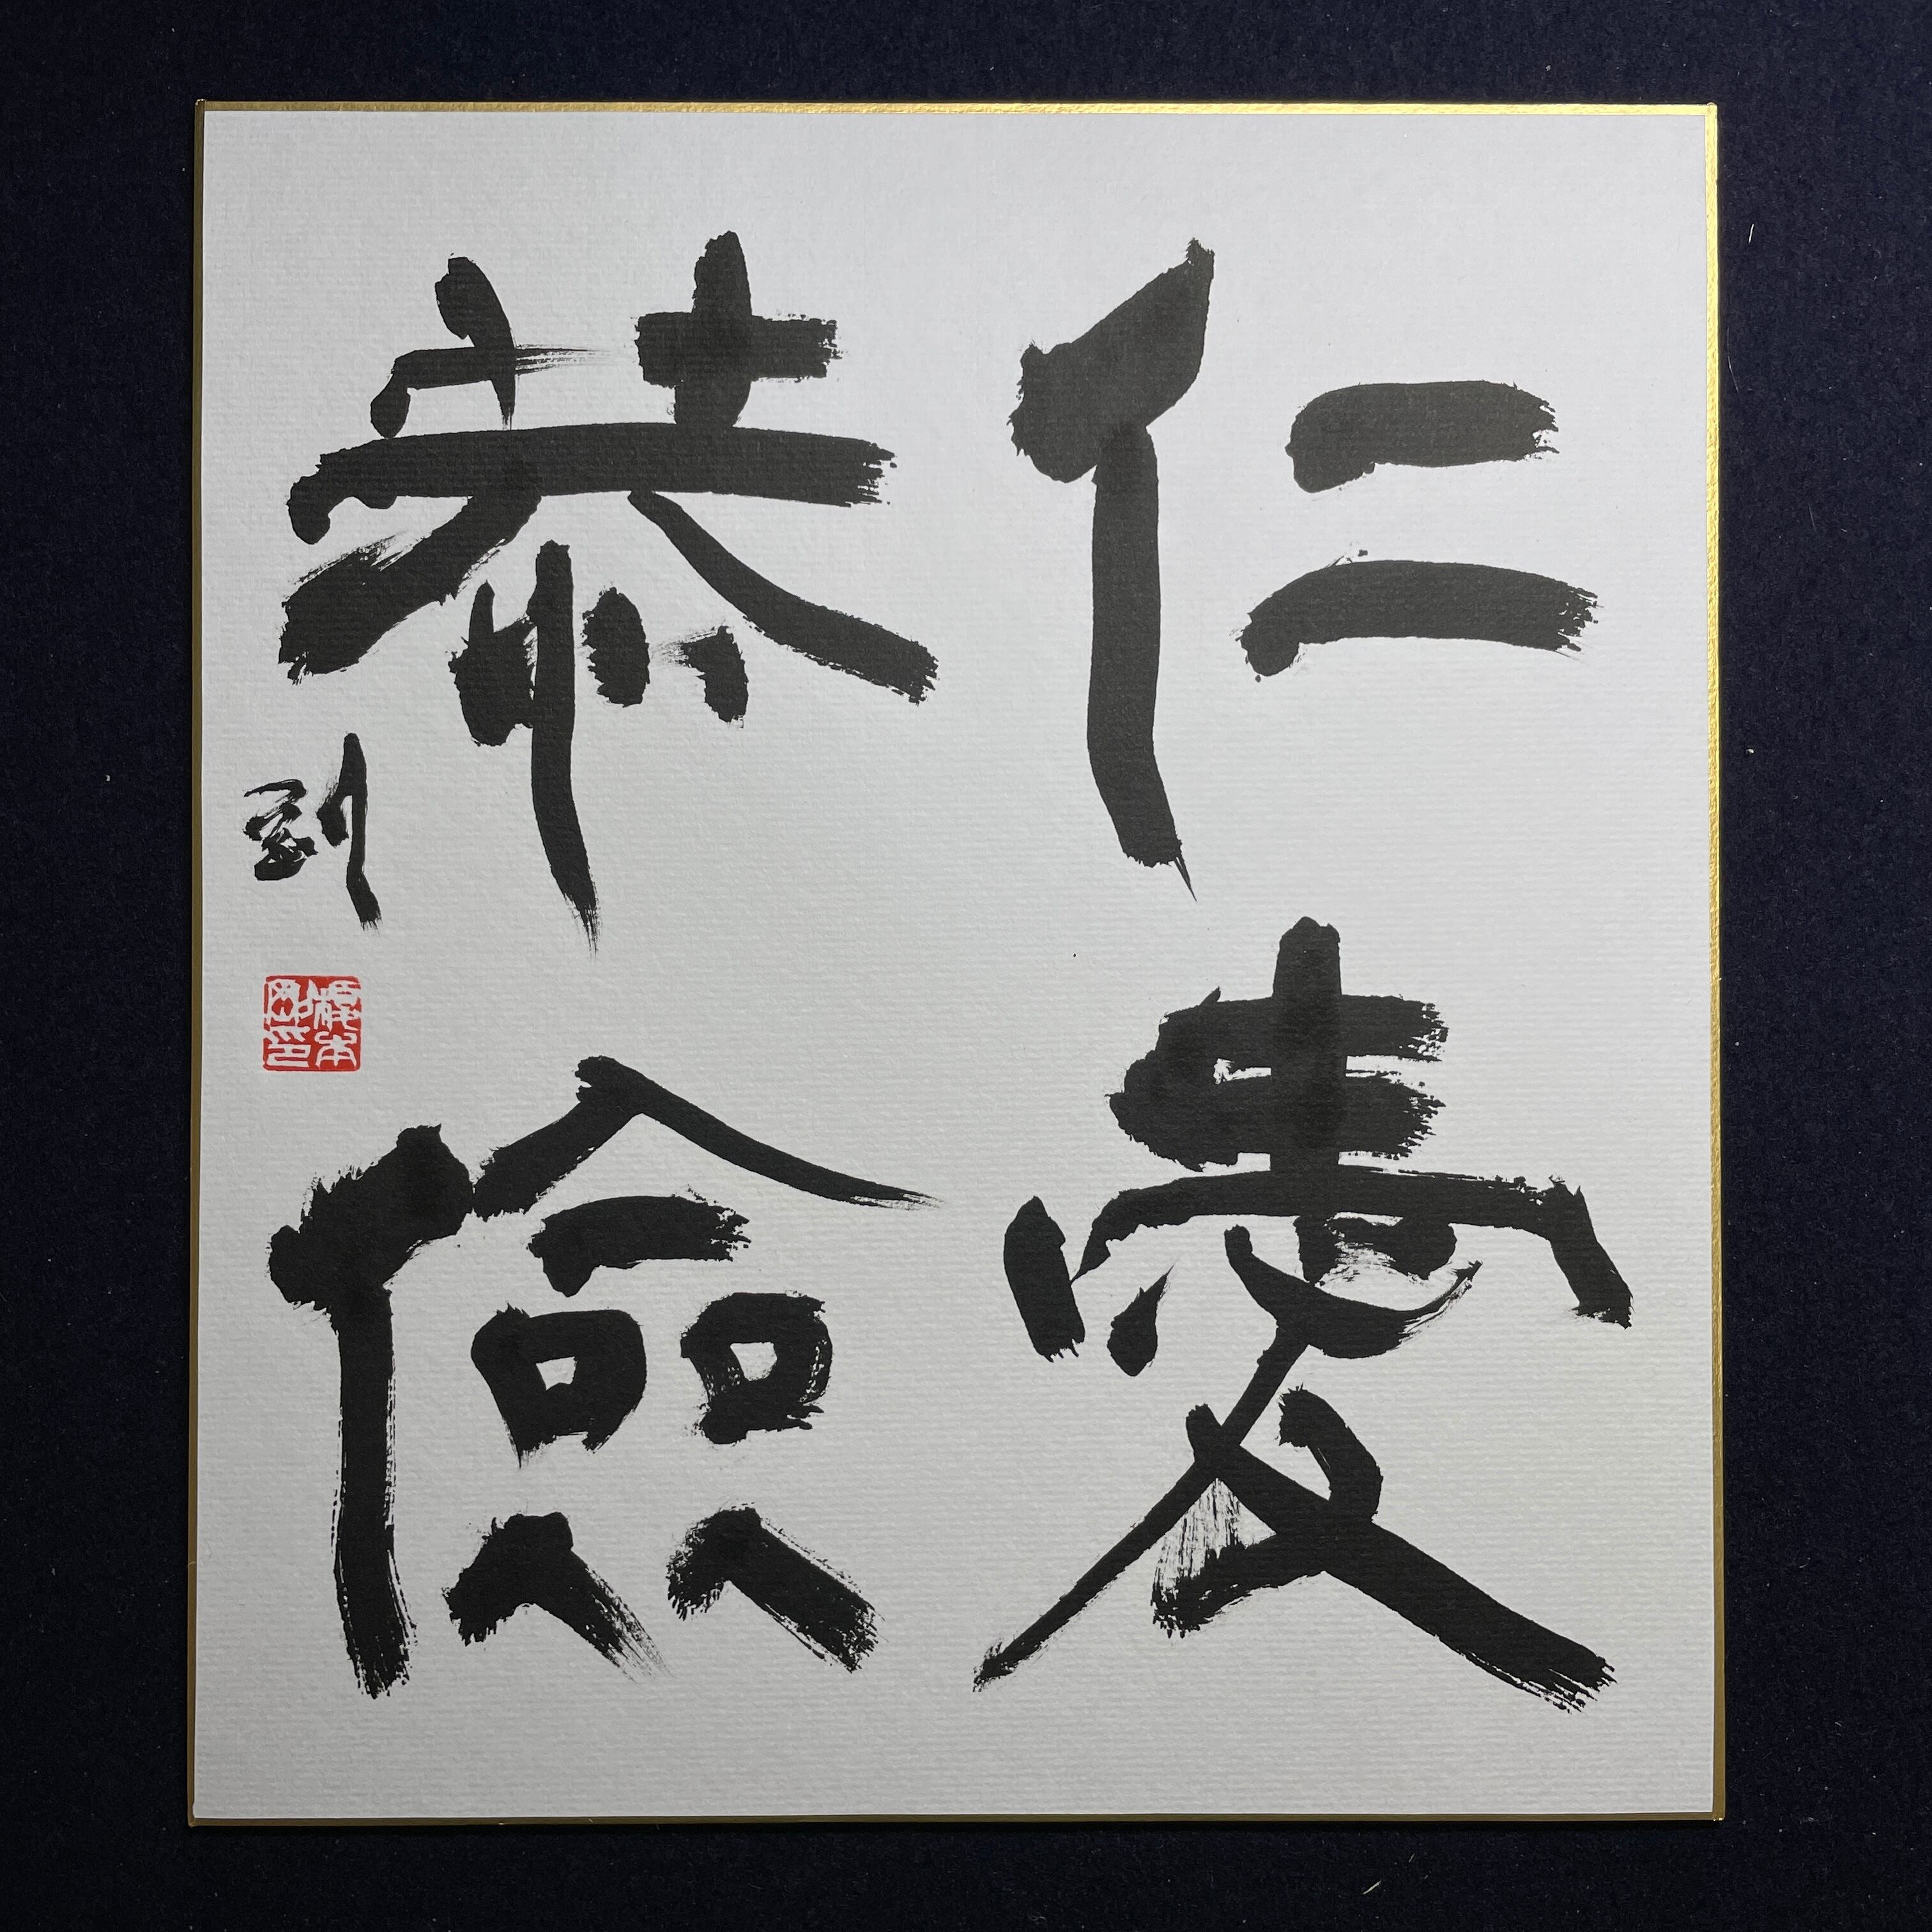 仁愛
恭儉
剛